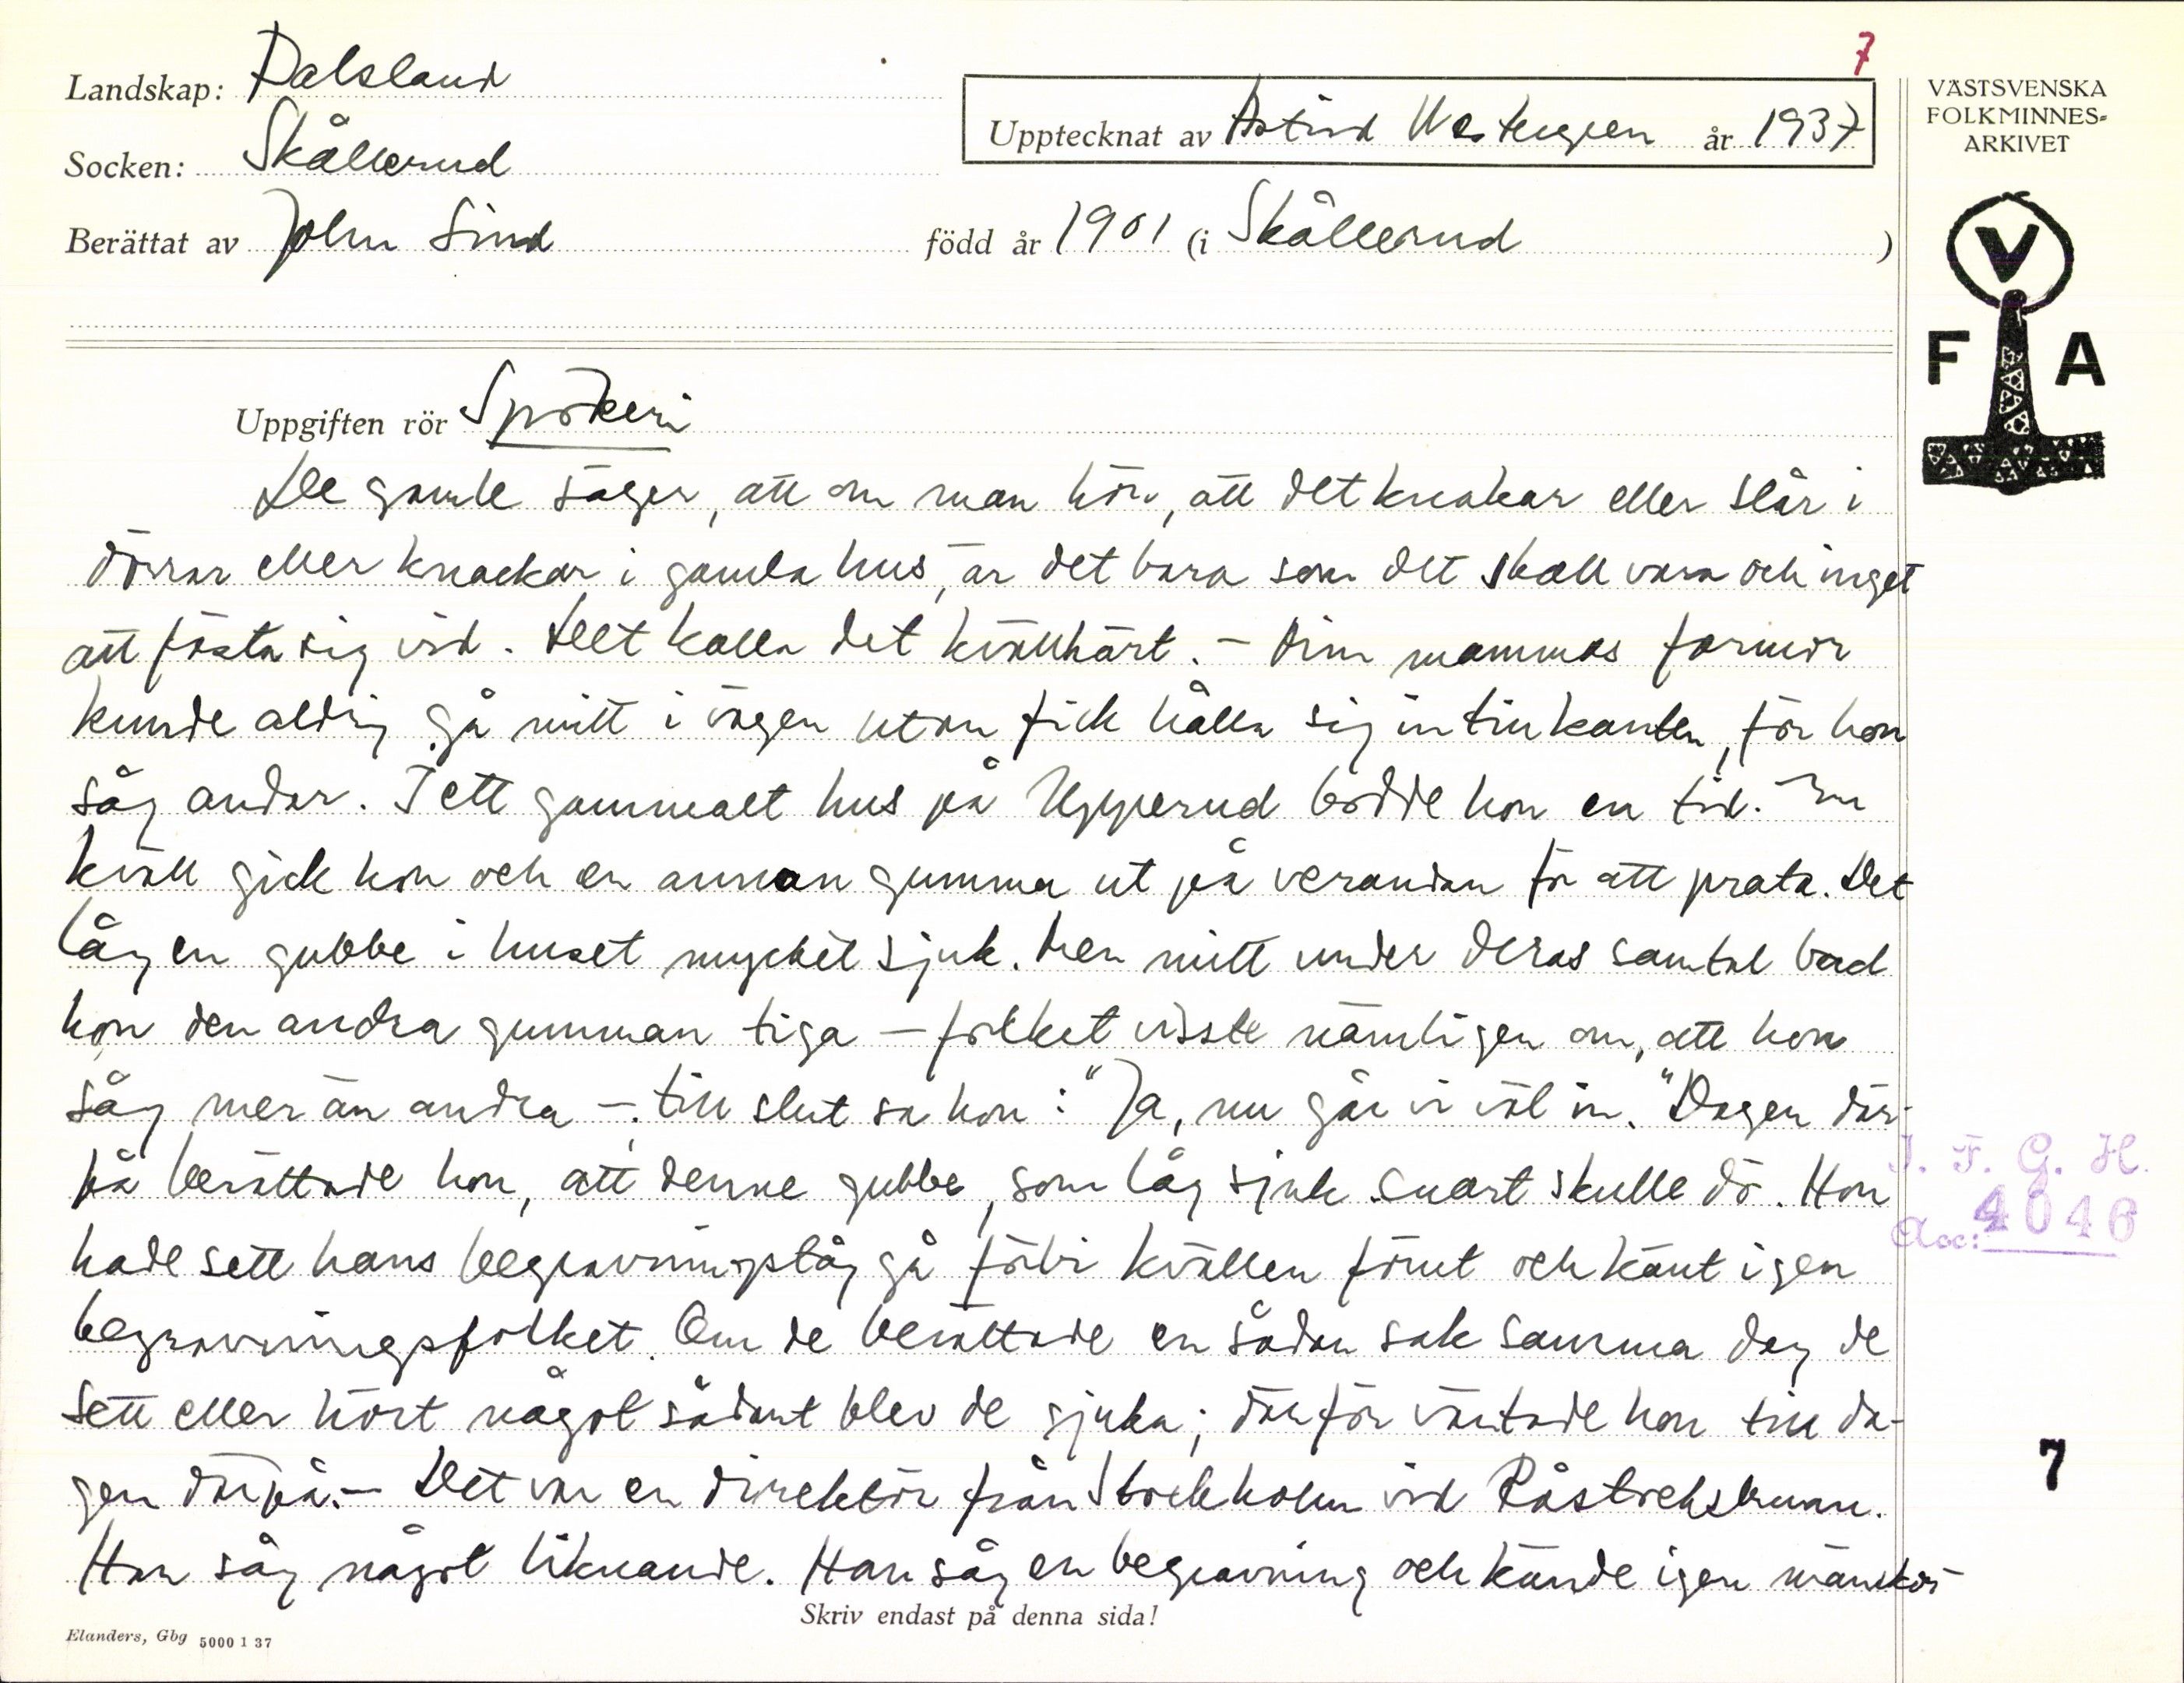 7
Landskap: Dalsland
Socken: Skållerud
Upptecknat av Astrid Westergren år 1937
Berättat av John Lind född år 1901 (i Skållerud)
VÄSTSVENSKA
FOLKMINNES=
ARKIVET
V
F A
Uppgiften rör Spökeri
De gamle säger, att om man hör, att det knakar eller slår i
dörrar eller knackar i gamla hus, är det bara som det skall vara och inget
att fästa sig vid. Det kalla det kvällhärt. - Min mammas farmor
kunde aldrig gå mitt i vägen utan fick hålla sig in till kanten, för hon
såg andar. I ett gammalt hus på Upperud bodde hon en tid. En
kväll gick hon och en annan gumma ut på verandan för att prata. Det
låg en gubbe i huset mycket sjuk. Men mitt under deras samtal bad
hon den andra gumman tiga - folket visste nämligen om, att hon
såg mer än andra -. till slut sa hon: "Ja, nu går vi väl in." Dagen där-
på berättade hon, att denne gubbe, som låg sjuk snart skulle dö. Hon
hade sett hans begravningståg gå förbi kvällen förut och känt igen
begravningsfolket. Om de berättade en sådan sak samma dag de
sett eller hört något sådant blev de sjuka; därför väntade hon till da-
gen därpå. - Det var en direktör från Stockholm vid Råstocksbruan.
Han såg något liknande. Han såg en begravning och kände igen mänskor
J. F. G. H.
Acc: 4046
7
Skriv endast på denna sida!
Elanders, Gbg 5000 1 37